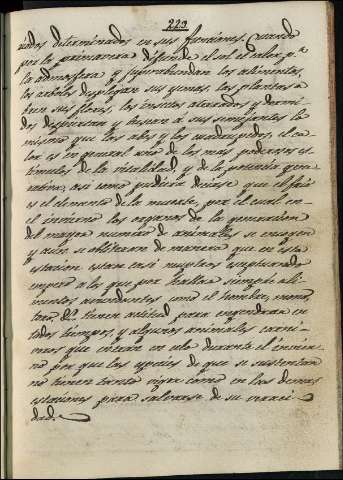 223
riodos determinados en sus funciones. Cuando
por la primavera difunde el sol el calor pr.
la atmosfera y superabundan los alimentos,
los arboles desplegan sus yemas, las plantas a
bren sus flores, los insectos aterrados y dormi-
dos despiertan y buscan á sus semejantes lo
mismo que las abes y los cuadrupedos, el ca-
lor es en general uno de los mas poderosos es-
tímulos de la vitalidad, y de la potencia gene-
rativa, asi como pudiera decirse que el frio
es el elemento de la muerte, por el cual en
el invierno los organos de la generacion
del mayor numero de animales se encogen
y aun se obliteran de manera que en esta
estacion estan casi nuestros
empero a los que por hallar siempre ali-
mentos abundantes como el hombre, mono,
toro &c. tienen actitud para engendrar en
todos tiempos, y algunos animales carni-
voros que entran en celo durante el invier-
no por que las especies de que se sustentan
no tienen tanto vigor como en las demas
estaciones para salvarse de su voraci-
dad.